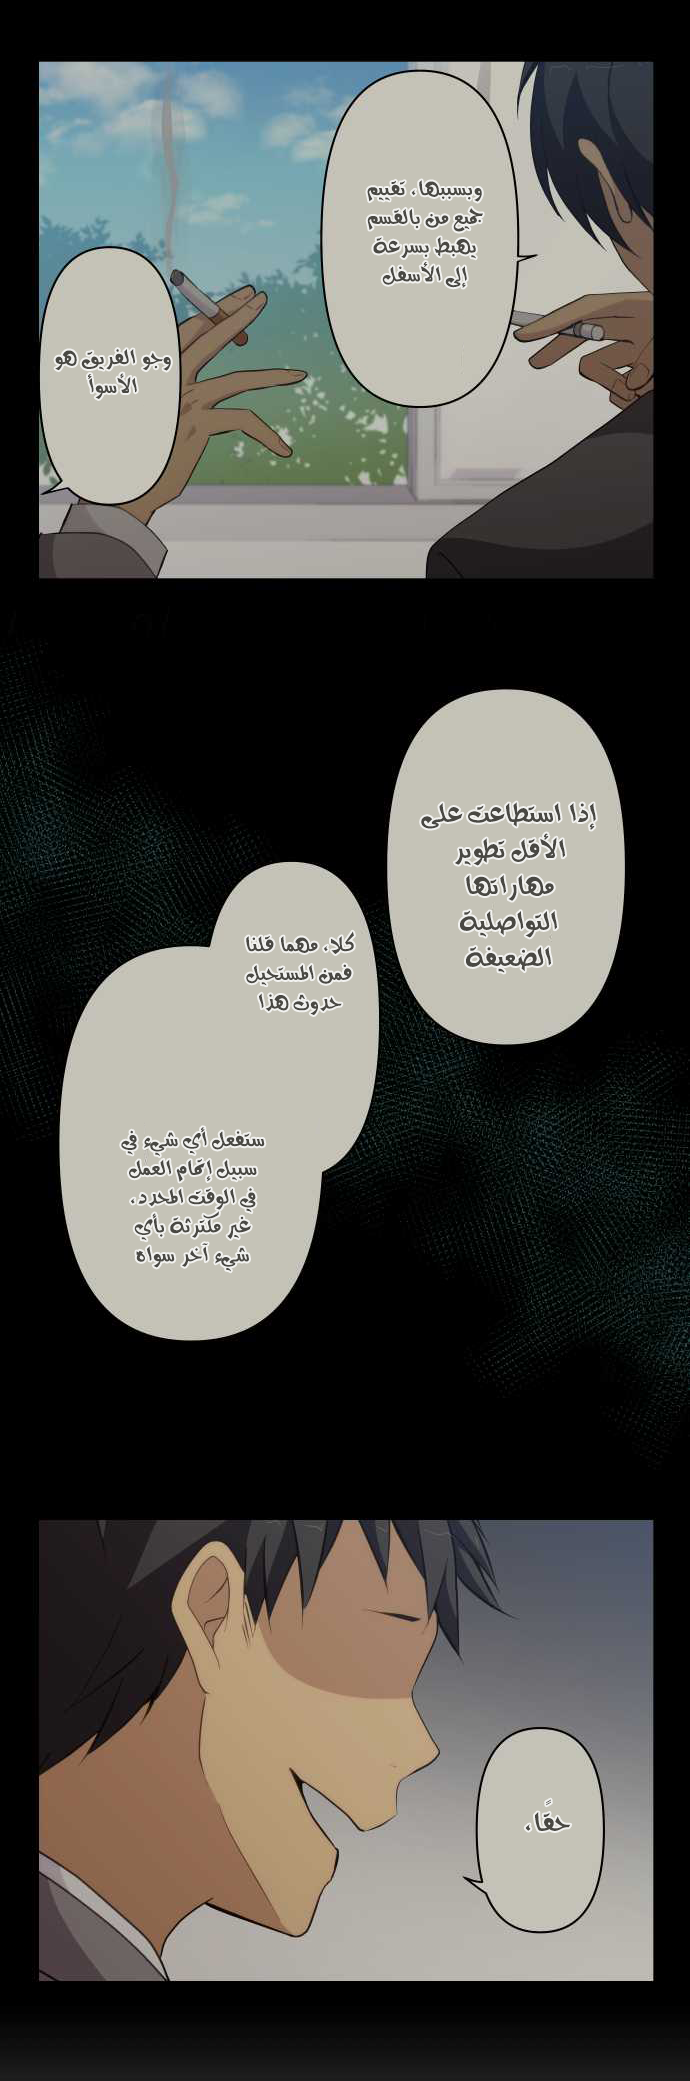 وبسببها، تقييم
جميع من بالقسم
يهبط بسرعة
إلى الأسفل
وجو الفريق هو
الأسوأ
إذا استطاعت على
الأقل تطوير
مهاراتها
التواصلية
الضعيفة
كلا، مهما قلنا
فمن المستحيل
حدوث هذا
ستفعل أي شيء في
سبيل إتمام العمل
في الوقت المحدد،
غير مكترثة بأي
شيء آخر سواه
حقًا،